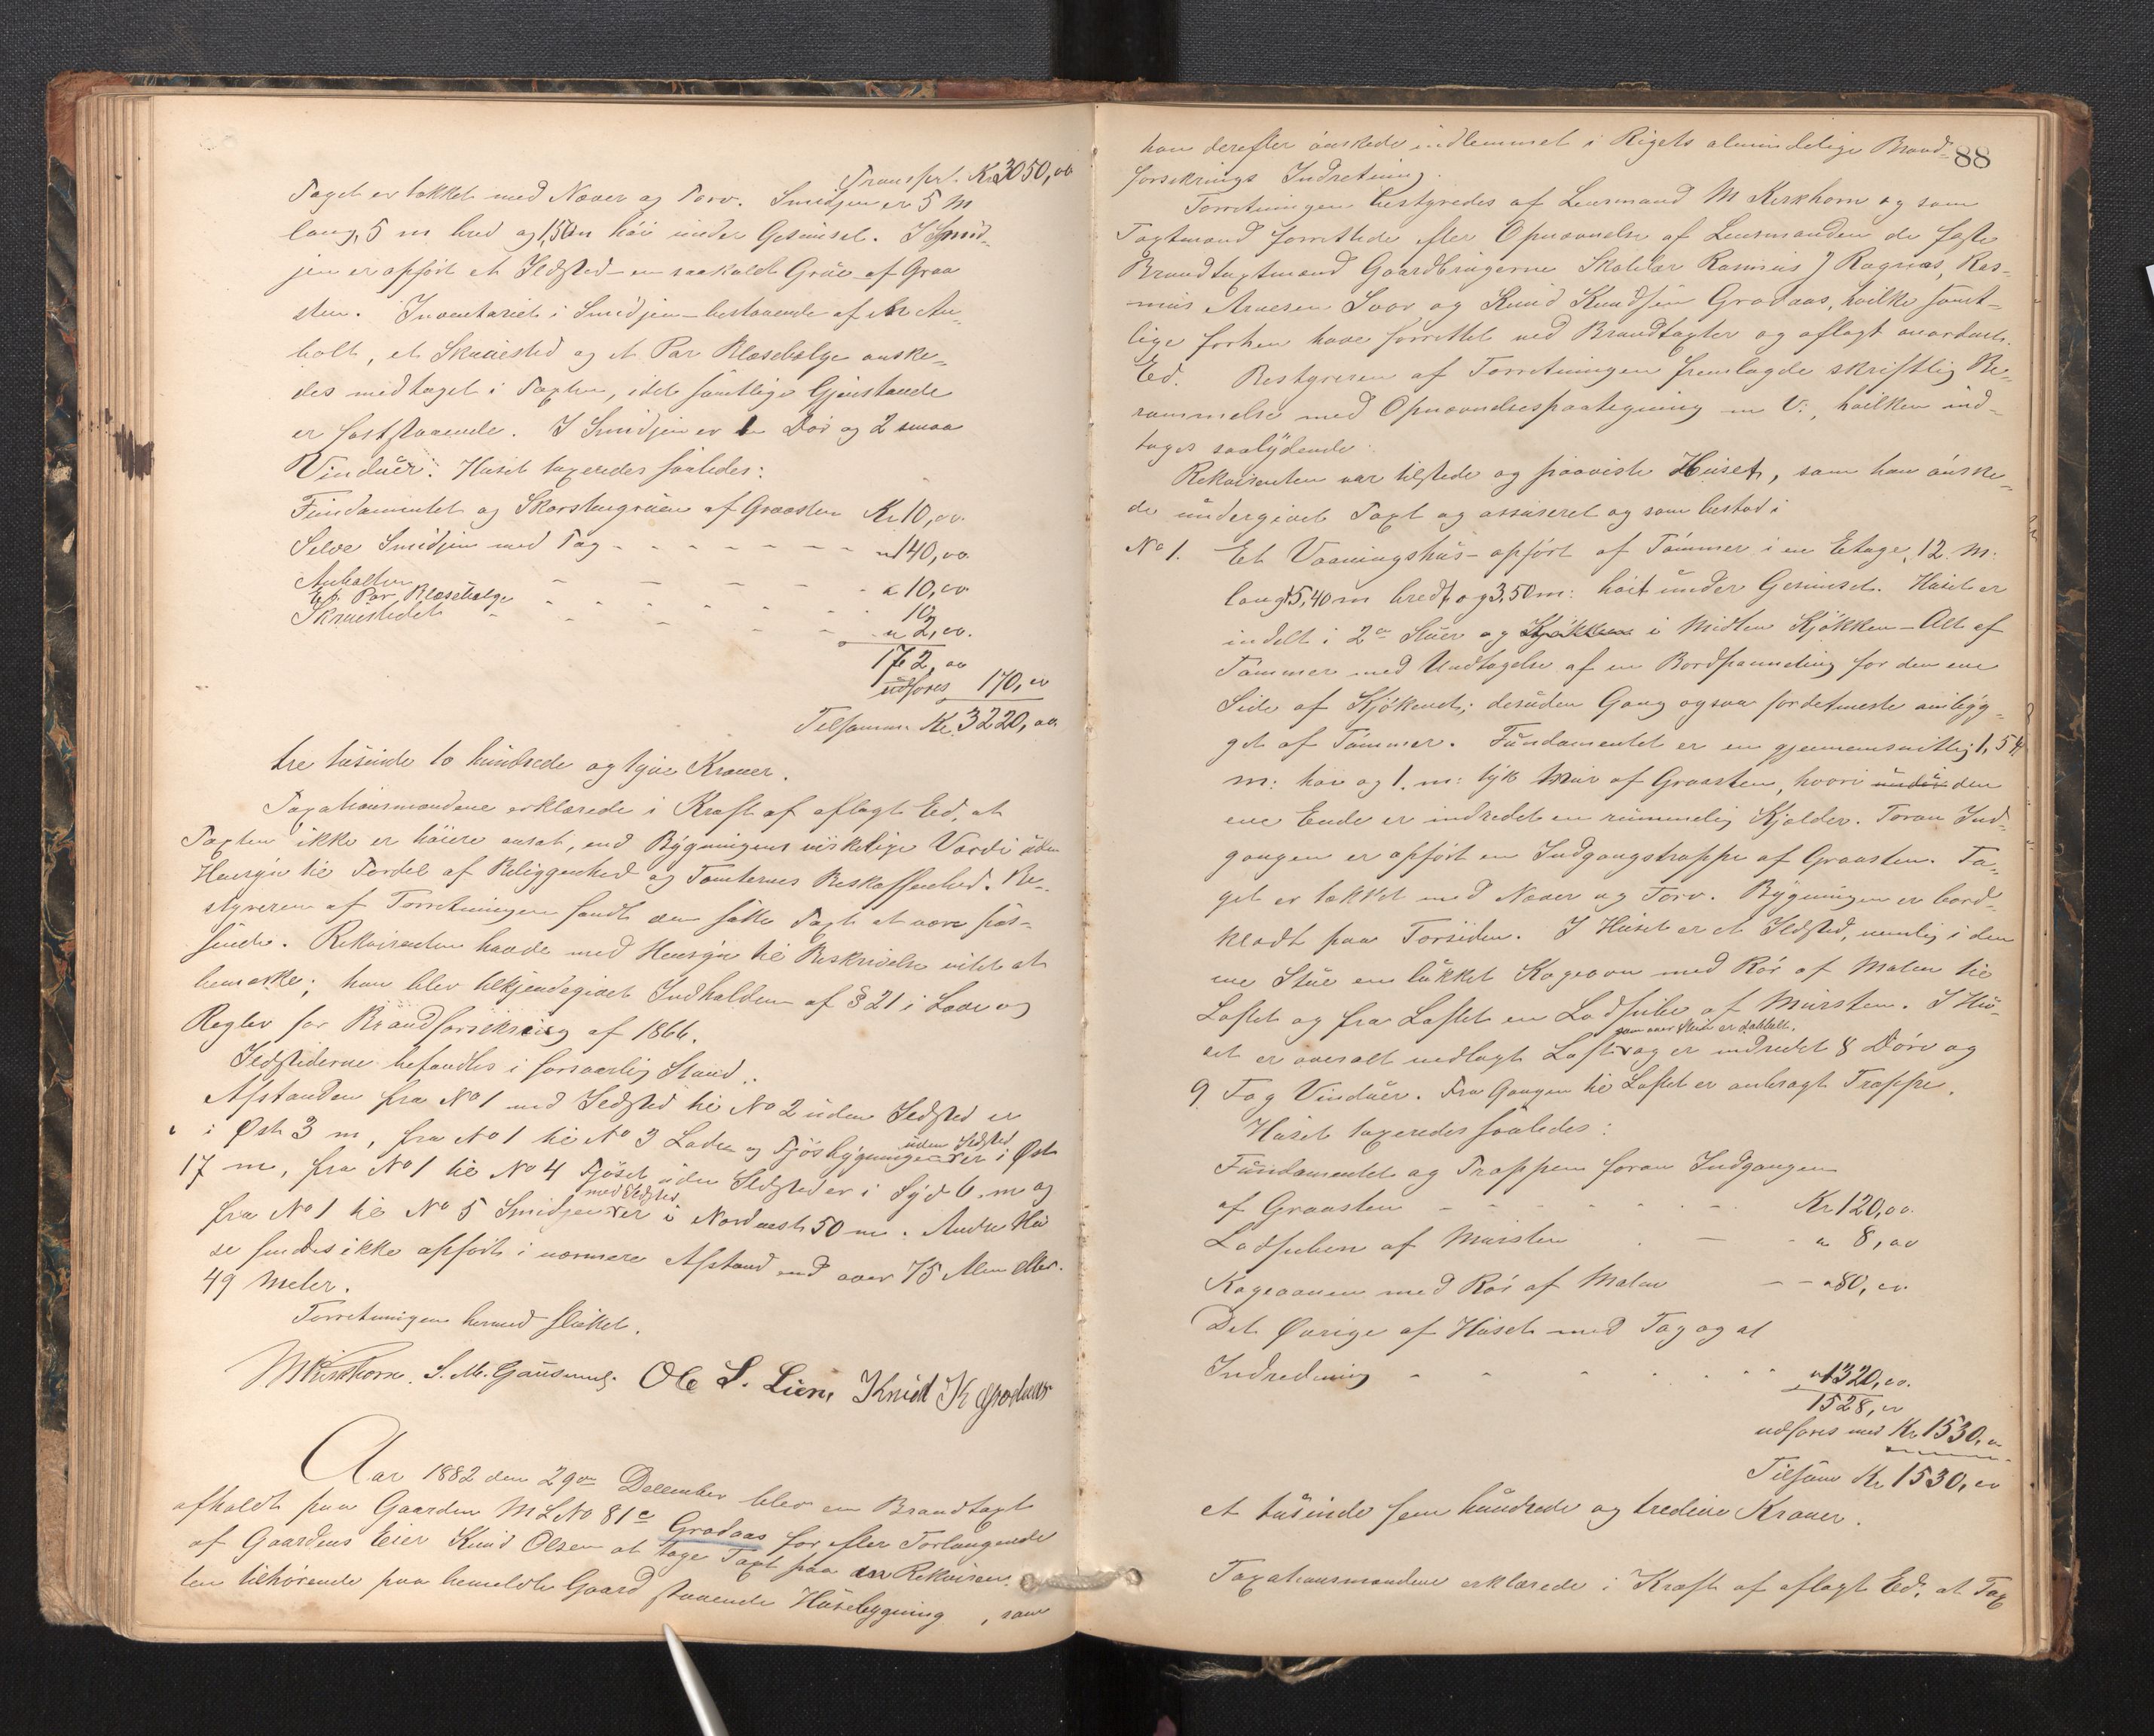 Transpt. Kr 3050,00
Taget er tækket med Næver og Torv. Smidjen er 5 M
lang, 5 m bred og 1,50 m høi under Gesimset. I Smid-
jen er opført et Ildsted - en saakaldt Grue af Graa
sten. Inventariet i Smidjen - bestaaende af en Am-
bolt, et Skruested og et Par Blæsebælge ønske-
des medtaget i Taxten, idet samtlige Gjenstande
er fastsaaende. I Smidjen er 1 en Dør og 2 smaa
Vinduer. Huset taxeredes saaledes:
Fundamentet og Skorstengruen af Graasten Kr 10,00
Selve Smidjen med Tag - - - - - - - " 140,00
Ambolten - - - - " 10,00
Et Par Blæsebælge - - - - 10
Skruestedet - - - - " 2,00
172,00
udføres 170,00
Tilsammen Kr. 3220,00
tre tusinde to hundrede og tyve Kroner.
Taxationsmændene erklærede i Kraft af aflagt Ed, at
Taxten ikke er høiere ansat, end Bygningens virkelige Værdi uden
Hensyn til Fordel af Beliggenhed og Tomternes Beskaffenhed. Be-
styreren af Forretningen fandt den satte Taxt at være pas-
sende. Rekvirenten havde med Hensyn til Beskrivelsen intet at
bemærke; han blev tilkjendegivet Indholdet af § 21 i Love og
Regler for Brandforsikring af 1866.
Ildstederne befandtes i forsvarlig Stand.
Afstanden fra No 1 med Ildsted til No 2 uden Ildsted er
i Øst 3 m, fra No 1 til No 3 Lade og Fjøsbygningen uden Ildsted er i Øst
17 m, fra No 1 til No 4 Fjøset uden Ildsted er i Syd 6 m og
fra No 1 til No 5 Smidjen med Ildsted er i Nordvest 50 m. Andre Hu
se fandtes ikke opført i nærmere Afstand end over 75 Alen eller
49 Meter.
Forretningen hermed sluttet.
M Kirkhorn. S. M. Gausemel. Ole L. Lien, Knud K Grodaas
Aar 1882 den 29de December blev en Brandtaxt
afholdt paa Gaarden M L No 81 c Grodaas for efter Forlangende
af Gaardens Eier Knud Olsen at tage Taxt paa en Rekviren-
ten tilhørende paa bemeldte Gaard staaende Husebygning, som
88
han derefter ønskede indlemmet i Rigets almindelige Brand-
forsikrings Indretning.
Forretningen bestyredes af Lensmand M Kirkhorn og som
Taxtmænd forrettede efter Opnævnelse af Lensmanden de faste
Brandtaxtmænd Gaardbrugerne Skolelær Rasmus J Raguas, Ras-
mus Arnesen Svor og Knud Knudsen Grodaas, hvilke samt-
lige forhen have forrettet ved Brandtaxter og aflagt anordnet
Ed. Bestyreren af Forretningen fremlagde skriftlig Be-
rammelse med Opnævnelsespaategning m V., hvilken ind-
tages saalydende:
Rekvirenten var tilstede og paaviste Huset, som han ønske-
de undergivet Taxt og assureret og som bestod i
No 1. Et Vaaningshus - opført af Tømmer i en Etage, 12 M.
langt, 5,40 m bredt og 3,50 m: høit under Gesimset. Huset er
indelt i 2de Stuer og Kjøkken i Midten Kjøkken - Alt af
Tømmer med Undtagelse af en Bordpanneling for den ene
Side af Kjøkenet; desuden Gang ogsaa fordetmeste ombyg-
get af Tømmer. Fundamentet er en gjennemsnitlig 1,54
m: høi og 1. m: tyk Mur af Graasten, hvori under den
ene Ende er indredet en rummelig Kjælder. Foran Ind-
gangen er opført en Indgangstrappe af Graasten. Ta-
get er tækket med Næver og Torv. Bygningen er bord-
klædt paa Forsiden. I Huset er et Ildsted, nemlig i den
ene Stue en lukket Kogeovn med Rør af Malm til
Loftet og fra Loftet en Lodpibe af Mursten. I Hu-
set er overalt nedlagt Loft som over Stuen er dobbelt. og er indredet 8 Døre og
9 Fag Vinduer. Fra Gangen til Loftet er anbragt Trappe.
Huset taxeredes saaledes:
Fundamentet og Trappen foran Indgangen
af Graasten - - - - - - Kr 120,00
Lodpiben af Mursten - - - " 8,00
Kogeovnen med Rør af Malm - - " 80,00
Det Øvrige af Huset med Tag og al
Indredning - - - - - - " 1320,00
1528,00
udføres med Kr 1530,00
Tilsam Kr 1530,00
et tusinde fem hundrede og tredive Kroner.
Taxationsmændene erklærede i Kraft af aflagt Ed, at Tax